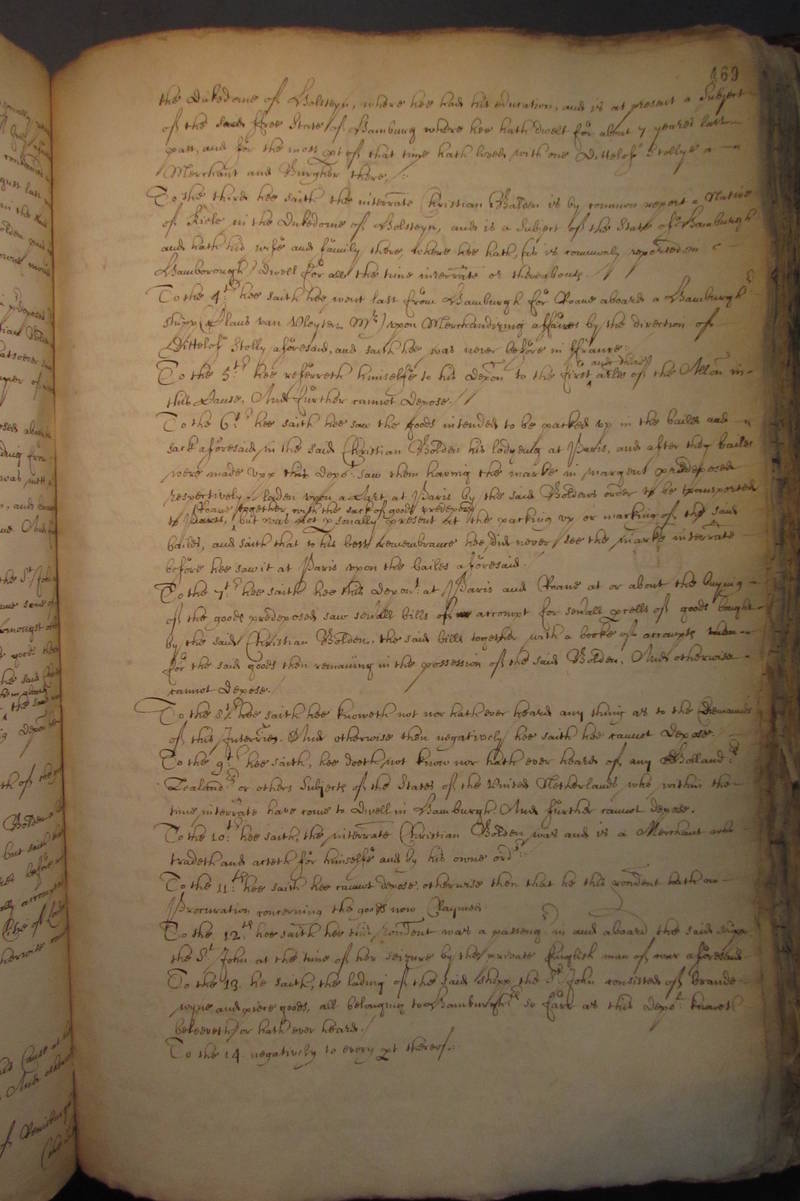 469
the Dukedome of Holsteyn, where hee had his education, and is at present a Subject
of the said free State of Hamburg where hee hath dwelt for about 7 yeares last
past, and for the most pt of that time hath lived with one Dittelof Stollye a
Merchant and Burgher there./
To the third hee saith the interrate Christian Bolden is by common report a Native
of Kiele in the Dukedome of Holsteyn, and is a Subject of the State of Hamburgh
and hath his wife and family there, where hee hath (as is commonly reported in
Hamborough) dwelt for all the time interrate or thereabouts./
To the 4th hee saith hee went last from Hamburgh for Roane aboard a Hamburgh
shipp (Claus van Vleyten Mr) upon Merchandizing affaires by the direction of
Dittelof Stolly aforesaid, and saith hee was never before in ffrance.
To the 5th hee referreth himselfe to his depon to the first and third arles of the Allon in
this Cause, And further cannot depose./
To the 6th hee saith hee saw the goods intended to be packed up in the bailes and
sack aforesaid in the said Christian Bolden his lodgeing at Paris, and after they bailes
were made upp this depot saw them having the marke in margent predeposed
respectively laden upon a Cart at Paris by the said Boldens order to be transported
to Roane together with the sack of goods predeposed, but was not psonally present at the packing up or marking of the said
bailes, and saith that to his best remembrance hee did never see the marke interrate
before hee saw it at Paris upon the bailes aforesaid.
To the 7th hee saith hee this depont at Paris and Roane at or about the buying
of the goods predeposed saw seuall bills of accompt for seuall prcells of goods bought
by the said Christian Bolden, the said bills together with a booke of accompts
for the said goods then remaining in the possession of the said Bolden, And otherwise
cannot depose./
To the 8th hee saith hee knoweth not nor hath ever heard any thing as to the Demands
of this Interrie, And otherwise then negatively hee saith hee cannot depose./
To the 9th hee saith, hee doeth not know nor hath ever heard of any Hollandrs
Zealandrs or others Subjects of the States of the United Netherlands who within the
time interrate have come to dwell in Hamburgh, And further cannot depose.
To the 10th hee saith, the interrate Christian Bolden was and is a Merchant and
tradeth and acteth for himselfe and by his owne ordr
To the 11th hee saith hee cannot depose otherwise then that he this rondent hath no
Procuration concerning the goods now claymed
To the 12th hee saith hee this rondent was a passengr in and aboard the said shipp
the St John at the time of her seizure by the private English man of war aforesaid
To the 13 he saith, the lading of the said shipp the St John consisted of brande
wyne and piece goods, all belonging to Hamburghrs so farr as this depot knoweth
beleeveth or hath ever heard./
To the 14 negatively to every pt thereof.